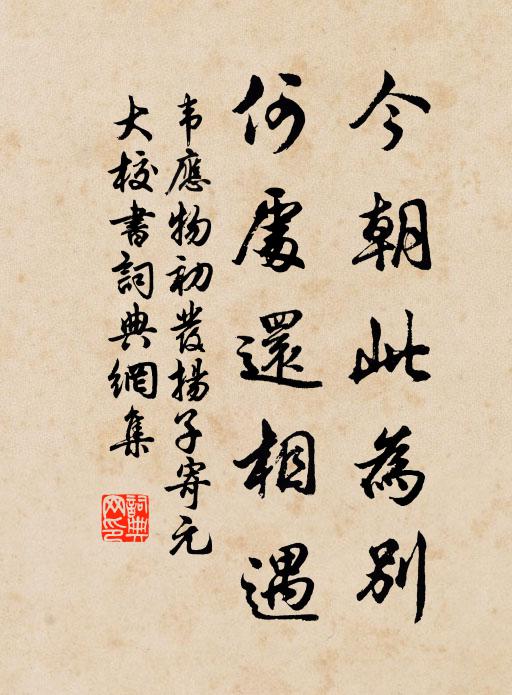 今朝此為別
何處還相遇
韦應物初發揚子寄元
大校書詞典網集
詞典
网印